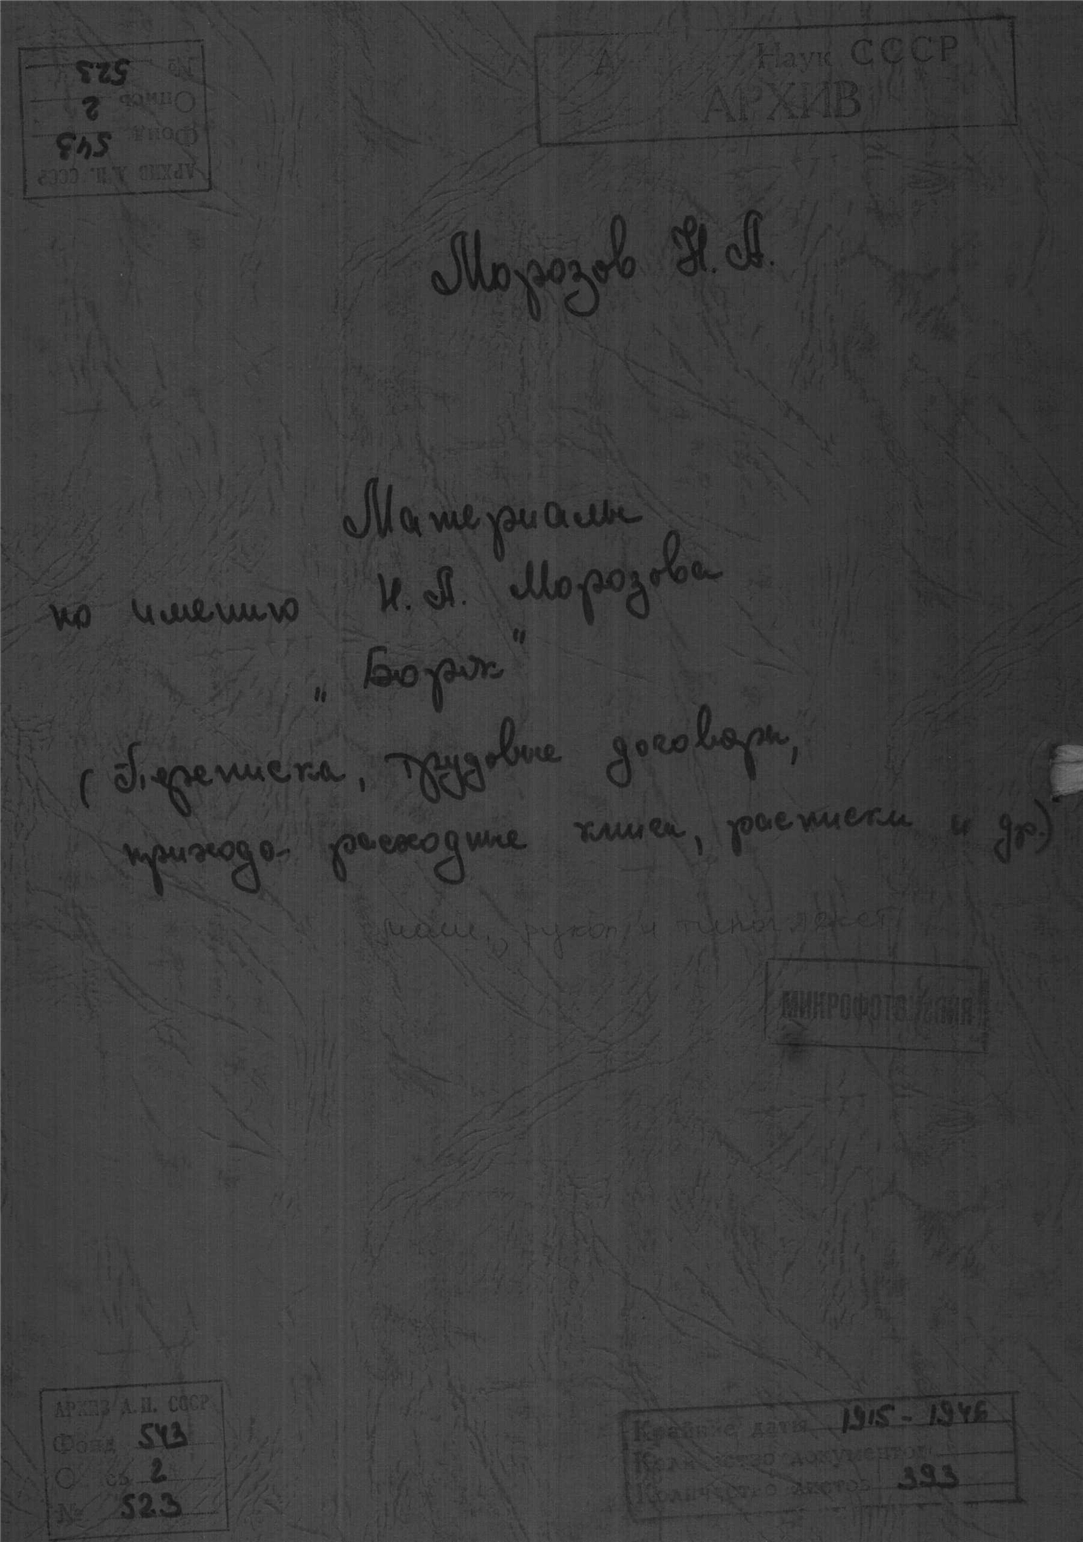 Наук СССР
АРХИВ
АРХИВ А.Н. СССР
Фонд 543
Опись 2
№ 523
Морозов Н. А.
Материалы
по имению Н. А. Морозова
„Борок"
(Переписка, трудовые договоры,
приходо-расходные книги, расписки и др.)
МИКРОФОТО
АРХИВ А.Н. СССР
Фонд 543
2
№ 523
Крайние даты 1915 - 1946
Количество документов
Количество листов 393